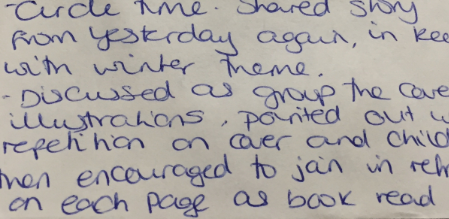 -Circle time. Shared story
from yesterday again, in kee
with winter theme.
-Discussed as group the cove
illustrations, pointed out w
repetition on cover and child
then encouraged to join in refr
on each page as book read